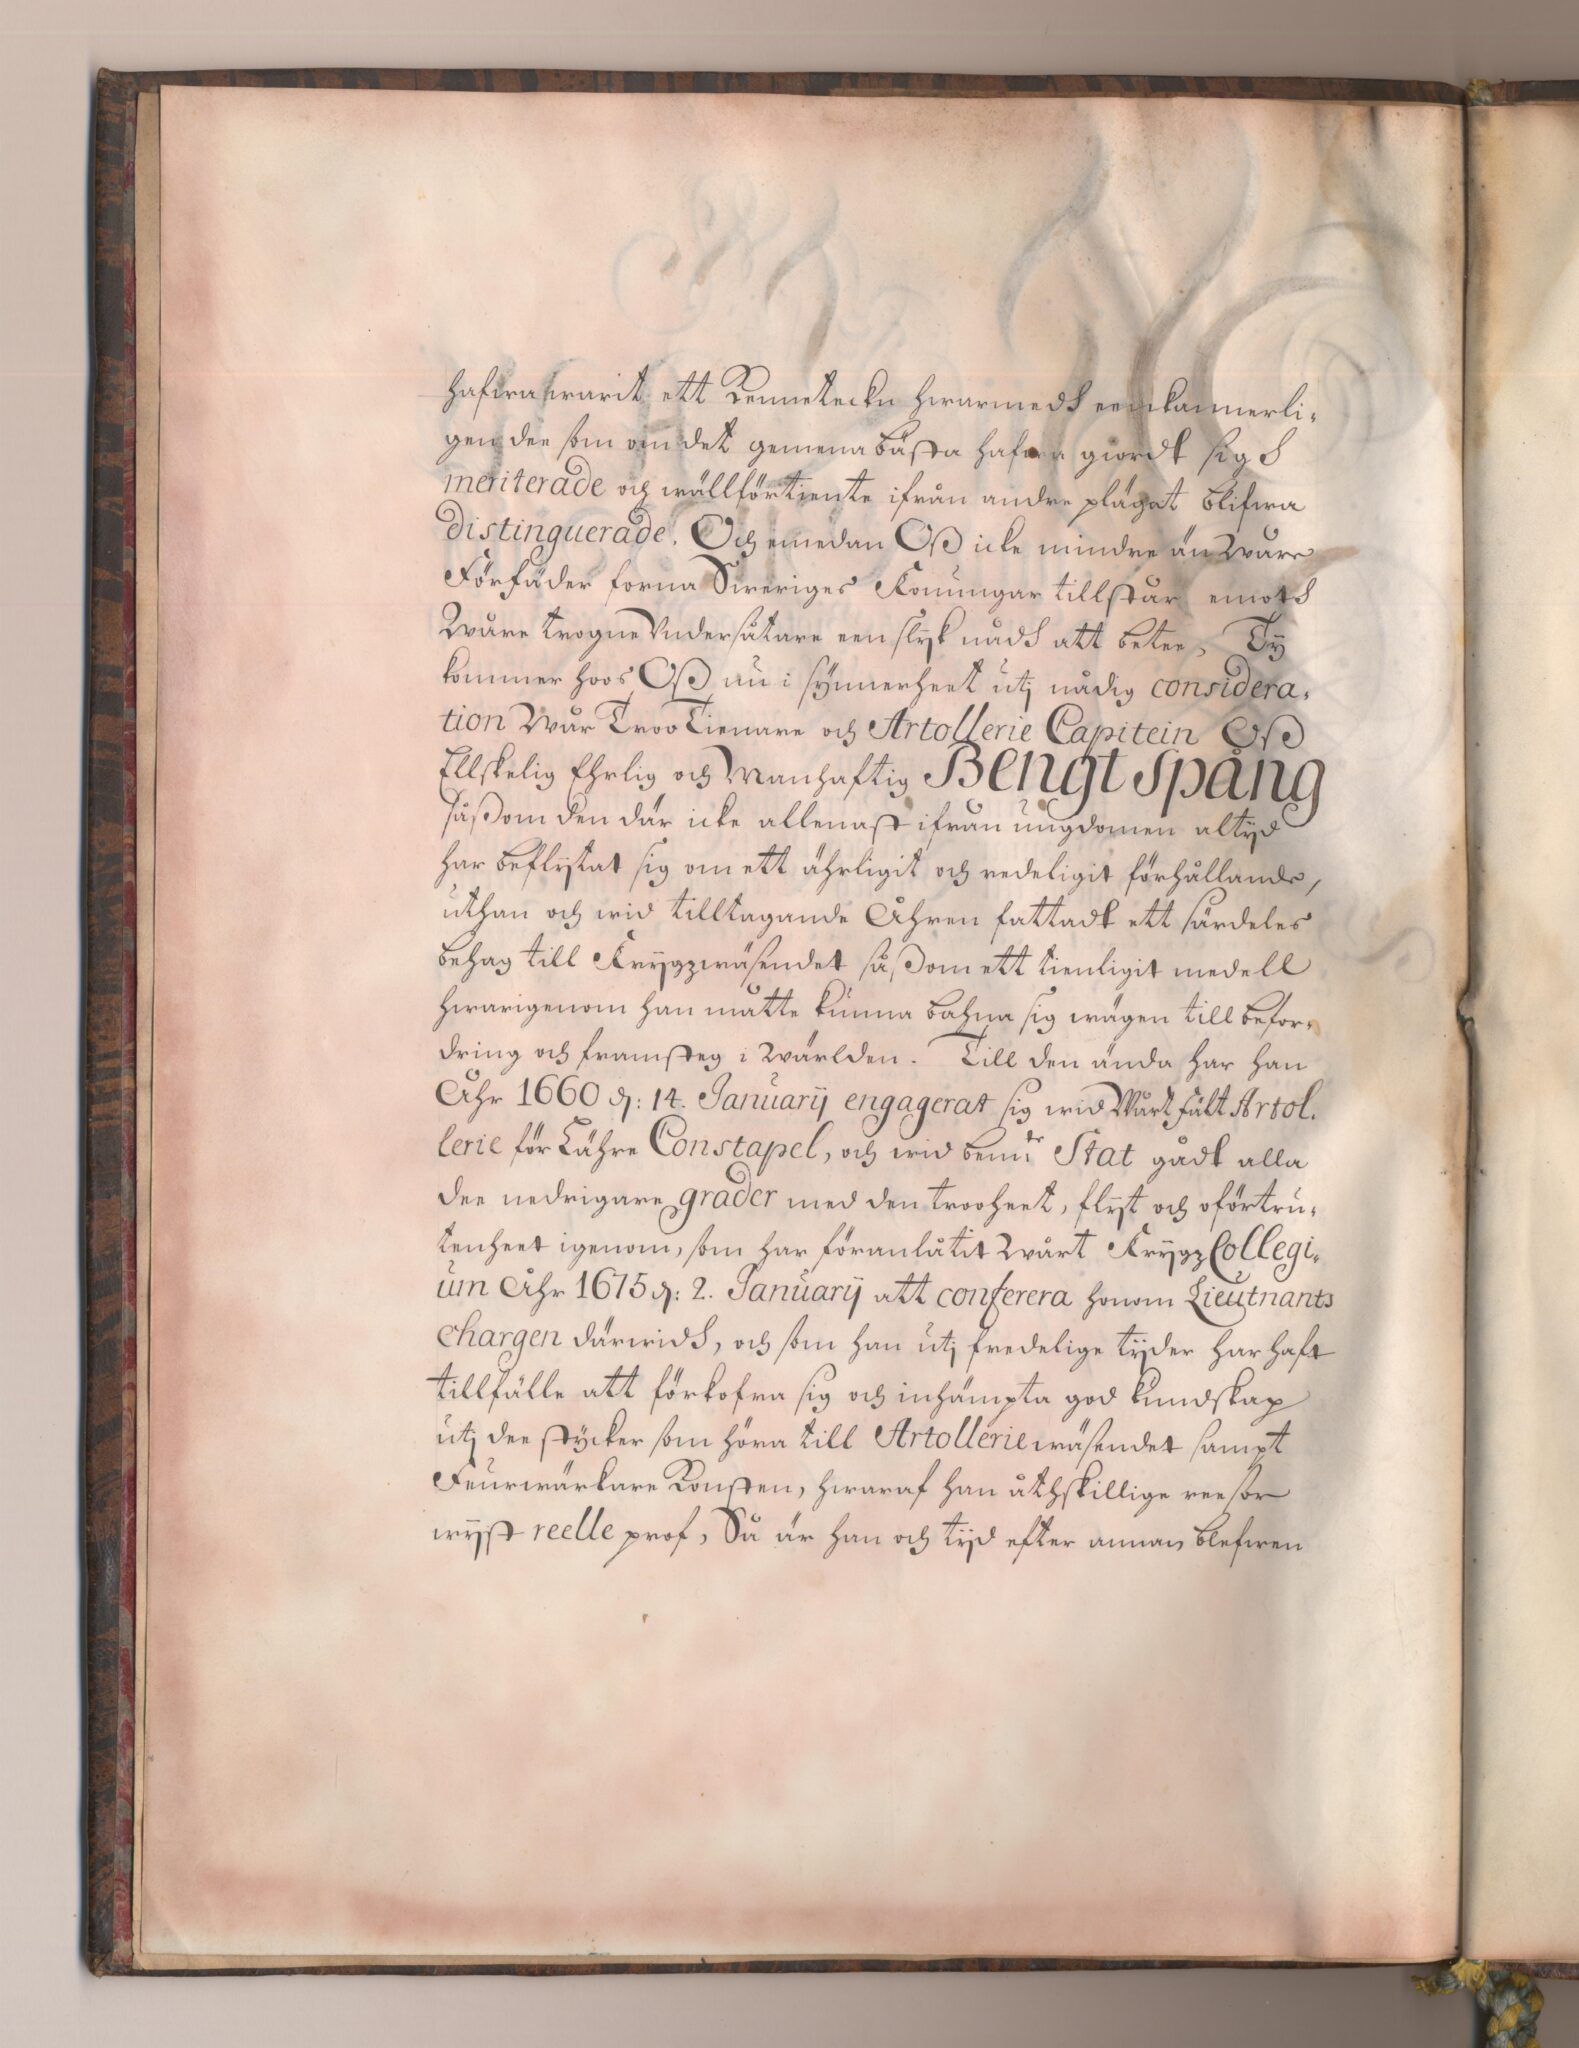 hafwa warit ett Kenneteckn hwarmedh eenkannerli-
gen dee som om det gemena bästa hafwa giordt sigh
meriterade och wällförtiente ifrån andre plägat blifwa
distinguerade. Och emedan Oß icke mindre än Wåre
Förfäder forna Sweriges Konungar tillstår emoth
Wåre trogne Undersåtare een slÿk nådh att betee, Tÿ
kommer hoos Oß nu i sÿnnerheet utj nådig considera-
tion Wår Troo Tienare och Artollerie Capitein Oß
Ellskelig Ehrlig och Manhaftig Bengt Spång
såßom den där icke allenast ifrån ungdomen altÿd
har beflÿtat sig om ett ährligit och redeligit förhållande,
uthan och wid tilltagande Åhren fattadt ett särdeles
behag till Krÿgzwäsendet såßom ett tienligit medell
hwarigenom han måtte kunna bahna sig wägen till befor-
dring och framsteg i Wärlden. Till den ända har han
Åhr 1660 d: 14. Januarÿ engagerat sig wid Wårt fält Artol-
lerie för Lähre Constapel, och wid bemte Stat gådt alla
dee nedrigare grader med den trooheet, flÿt och oförtru-
tenheet igenom, som har föranlåtit Wårt Krÿgz Collegi-
um Åhr 1675 d: 2. Januarÿ att conferera honom Lieutnants
chargen därwidh, och som han utj fredelige tÿder har haft
tillfälle att förkofra sig och inhämpta god kundskap
utj dee stÿcker som höra till Artolleriewäsendet sampt
Feurwärkare Konsten, hwaraf han åthskillige reesor
wÿst reelle prof, Så är han och tÿd efter annan blefwen